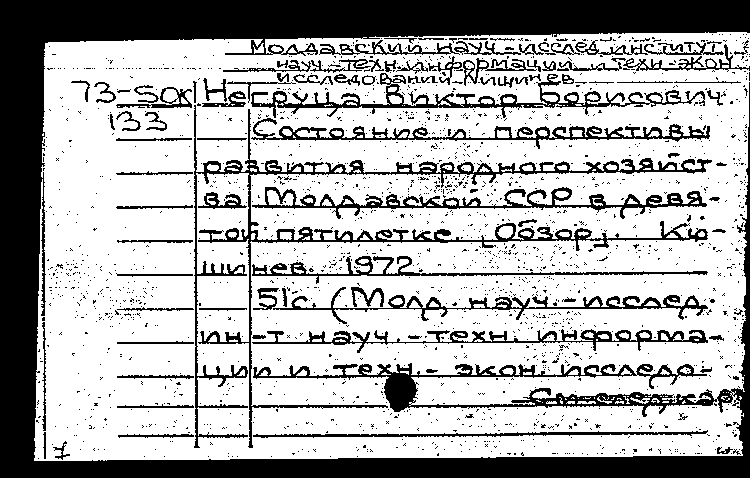 Молдавский науч.-исслед. институт
науч.-техн. информации и техн.-экон.
исследований. Кишинев
73-50к Негруца, Виктор Борисович.
133 Состояние и перспективы
развития народного хозяйст-
ва Молдавской ССР в девя-
той пятилетке. [Обзор]. Ки-
шинев, 1972.
51с. (Молд. науч.-исслед.
ин-т науч.-техн. информа-
ции и техн.-экон. исследо-
См. след. кар